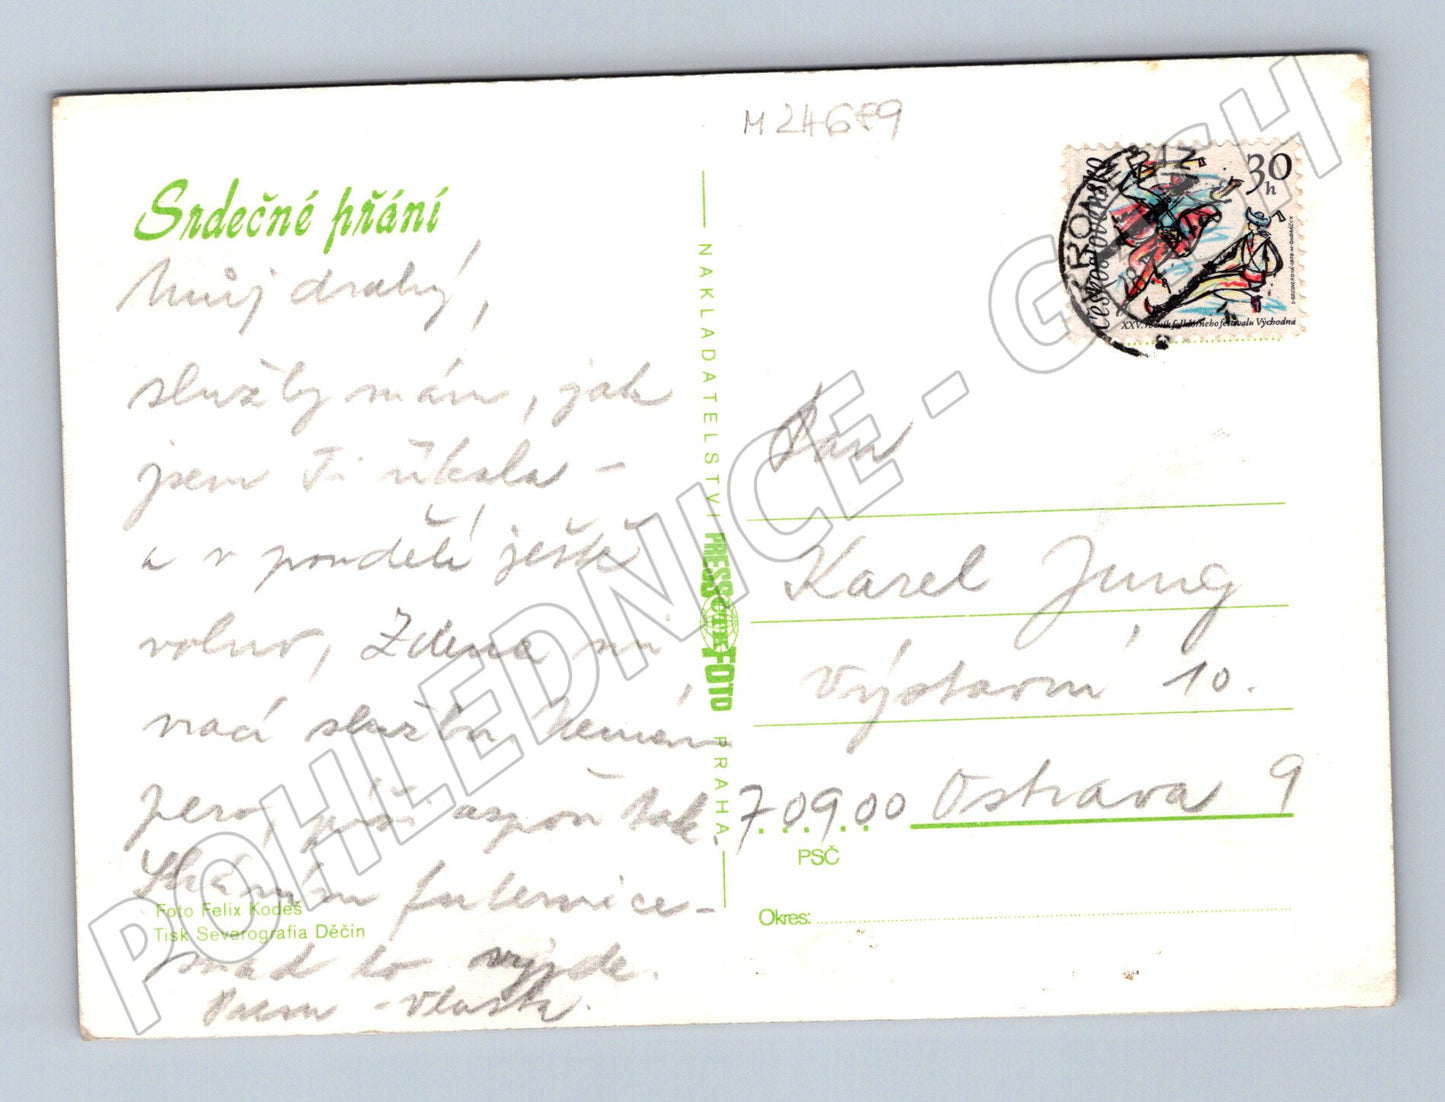 M 24679
Srdečné přání
Můj drahý,
služby mám, jak
jsem Ti říkala –
a v pondělí ještě
volno, Zdena mi
vrací službu. Nemám
pero, píši aspoň tak.
Sháním
snad to vyjde.
Vlasta.
Foto Felix Kodeš
Tisk Severografia Děčín
NAKLADATELSTVÍ PRESSFOTO PRAHA
Československo
30 h
XXV. ročník folklórneho festivalu Východná
Pan
Karel Jung
Výstavní 10.
709 00 Ostrava 9
PSČ
Okres:
POHLEDNICE - G